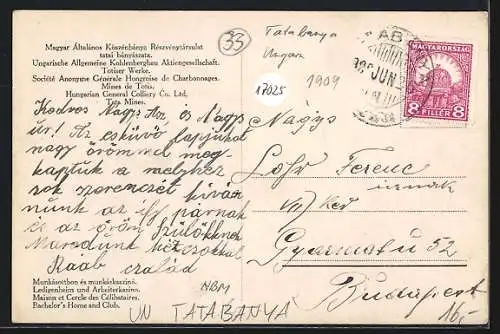 Magyar Általános Kőszénbánya Részvénytársulat
tatai bányászata.
Ungarische Allgemeine Kohlenbergbau Aktiengesellschaft.
Totiser Werke.
Société Anonyme Générale Hongroise de Charbonnages.
Mines de Tata.
Hungarian General Colliery Co. Ltd.
Tata Mines.
33
Tatabanya
Ungarn
1909
17025
MAGYARORSZÁG
8 FILLÉR 8
Kedves Nagys. Asz. és Nagys
úr! Az esküvő lapjukat
nagy örömmel meg
kaptuk a melyhez
sok szerencsét kívá
nunk az ifj párnak
és az öröm szülőknek
Maradunk kézcsókkal
Raáb család
Nagys
Lőhr Ferenc
úrnak
VII ker
Gyarmat u 52
Budapest
Munkásotthon és munkáskaszinó.
Ledigenheim und Arbeiterkasino.
Maison et Cercle des Célibataires.
Bachelor's Home and Club.
UN TATABANYA
16,-